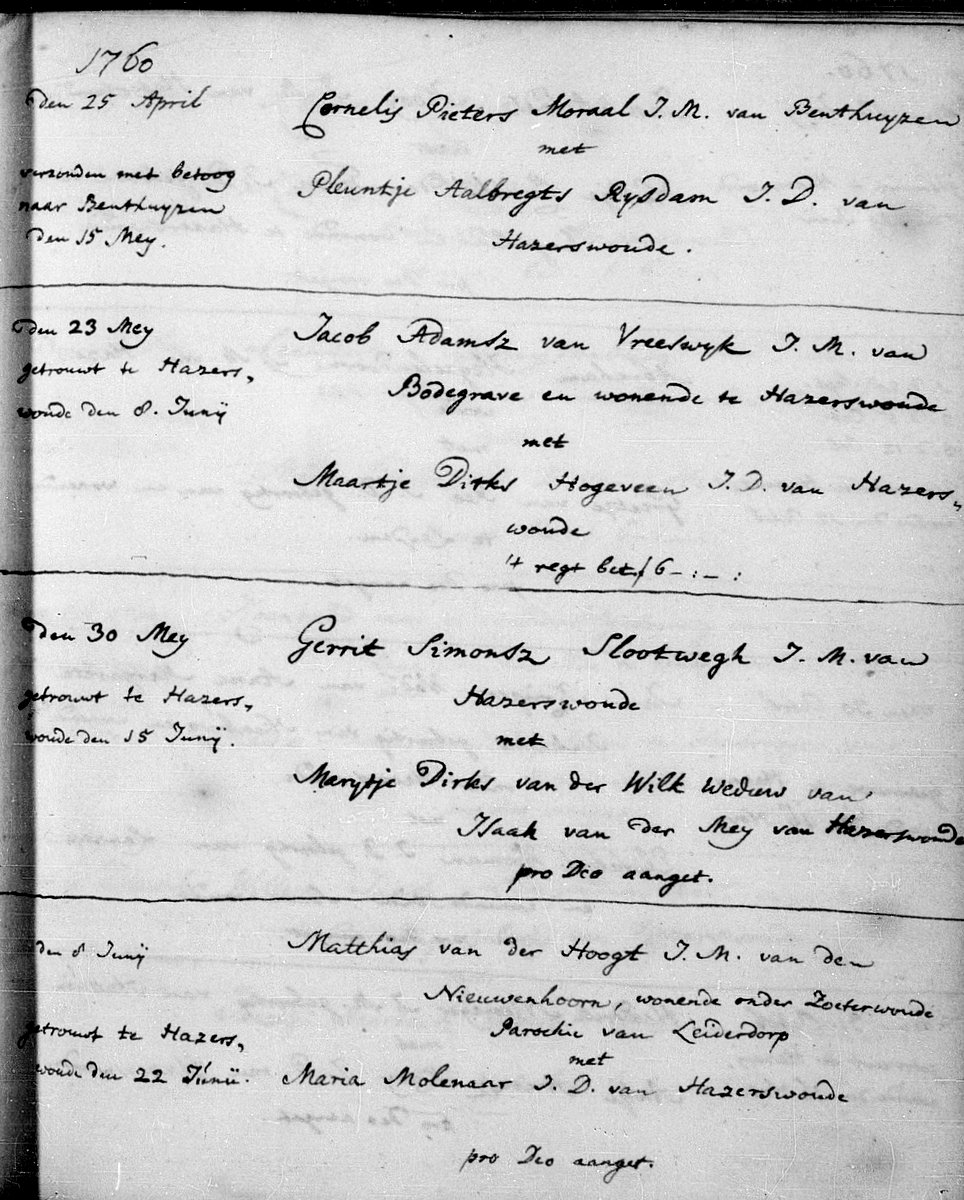 1760
den 25 April
Cornelis Pieters Moraal J. M. van Benthuyzen
met
verzonden met betoog
naar Benthuyzen
den 15 Mey.
Pleuntje Aalbregts Rysdam J. D. van
Hazerswoude.
den 23 Mey
getrouwt te Hazers„
woude den 8. Junÿ
Jacob Adamsz van Vreeswyk J. M. van
Bodegrave en wonende te Hazerswoude
met
Maartje Dirks Hogeveen J. D. van Hazers„
woude
't regt bet. ƒ 6 - : - :
den 30 Mey
getrouwt te Hazers„
woude den 15 Junÿ.
Gerrit Simonsz Slootwegh J. M. van
Hazerswoude
met
Marytje Dirks van der Wilk weduw van
Isaak van der Mey van Hazerswoude
pro Deo aanget.
den 8 Junÿ
getrouwt te Hazers„
woude den 22 Junÿ.
Matthias van der Hoogt J. M. van den
Nieuwenhoorn, wonende onder Zoeterwoude
Parochie van Leiderdorp
met
Maria Molenaar J. D. van Hazerswoude
pro Deo aanget.